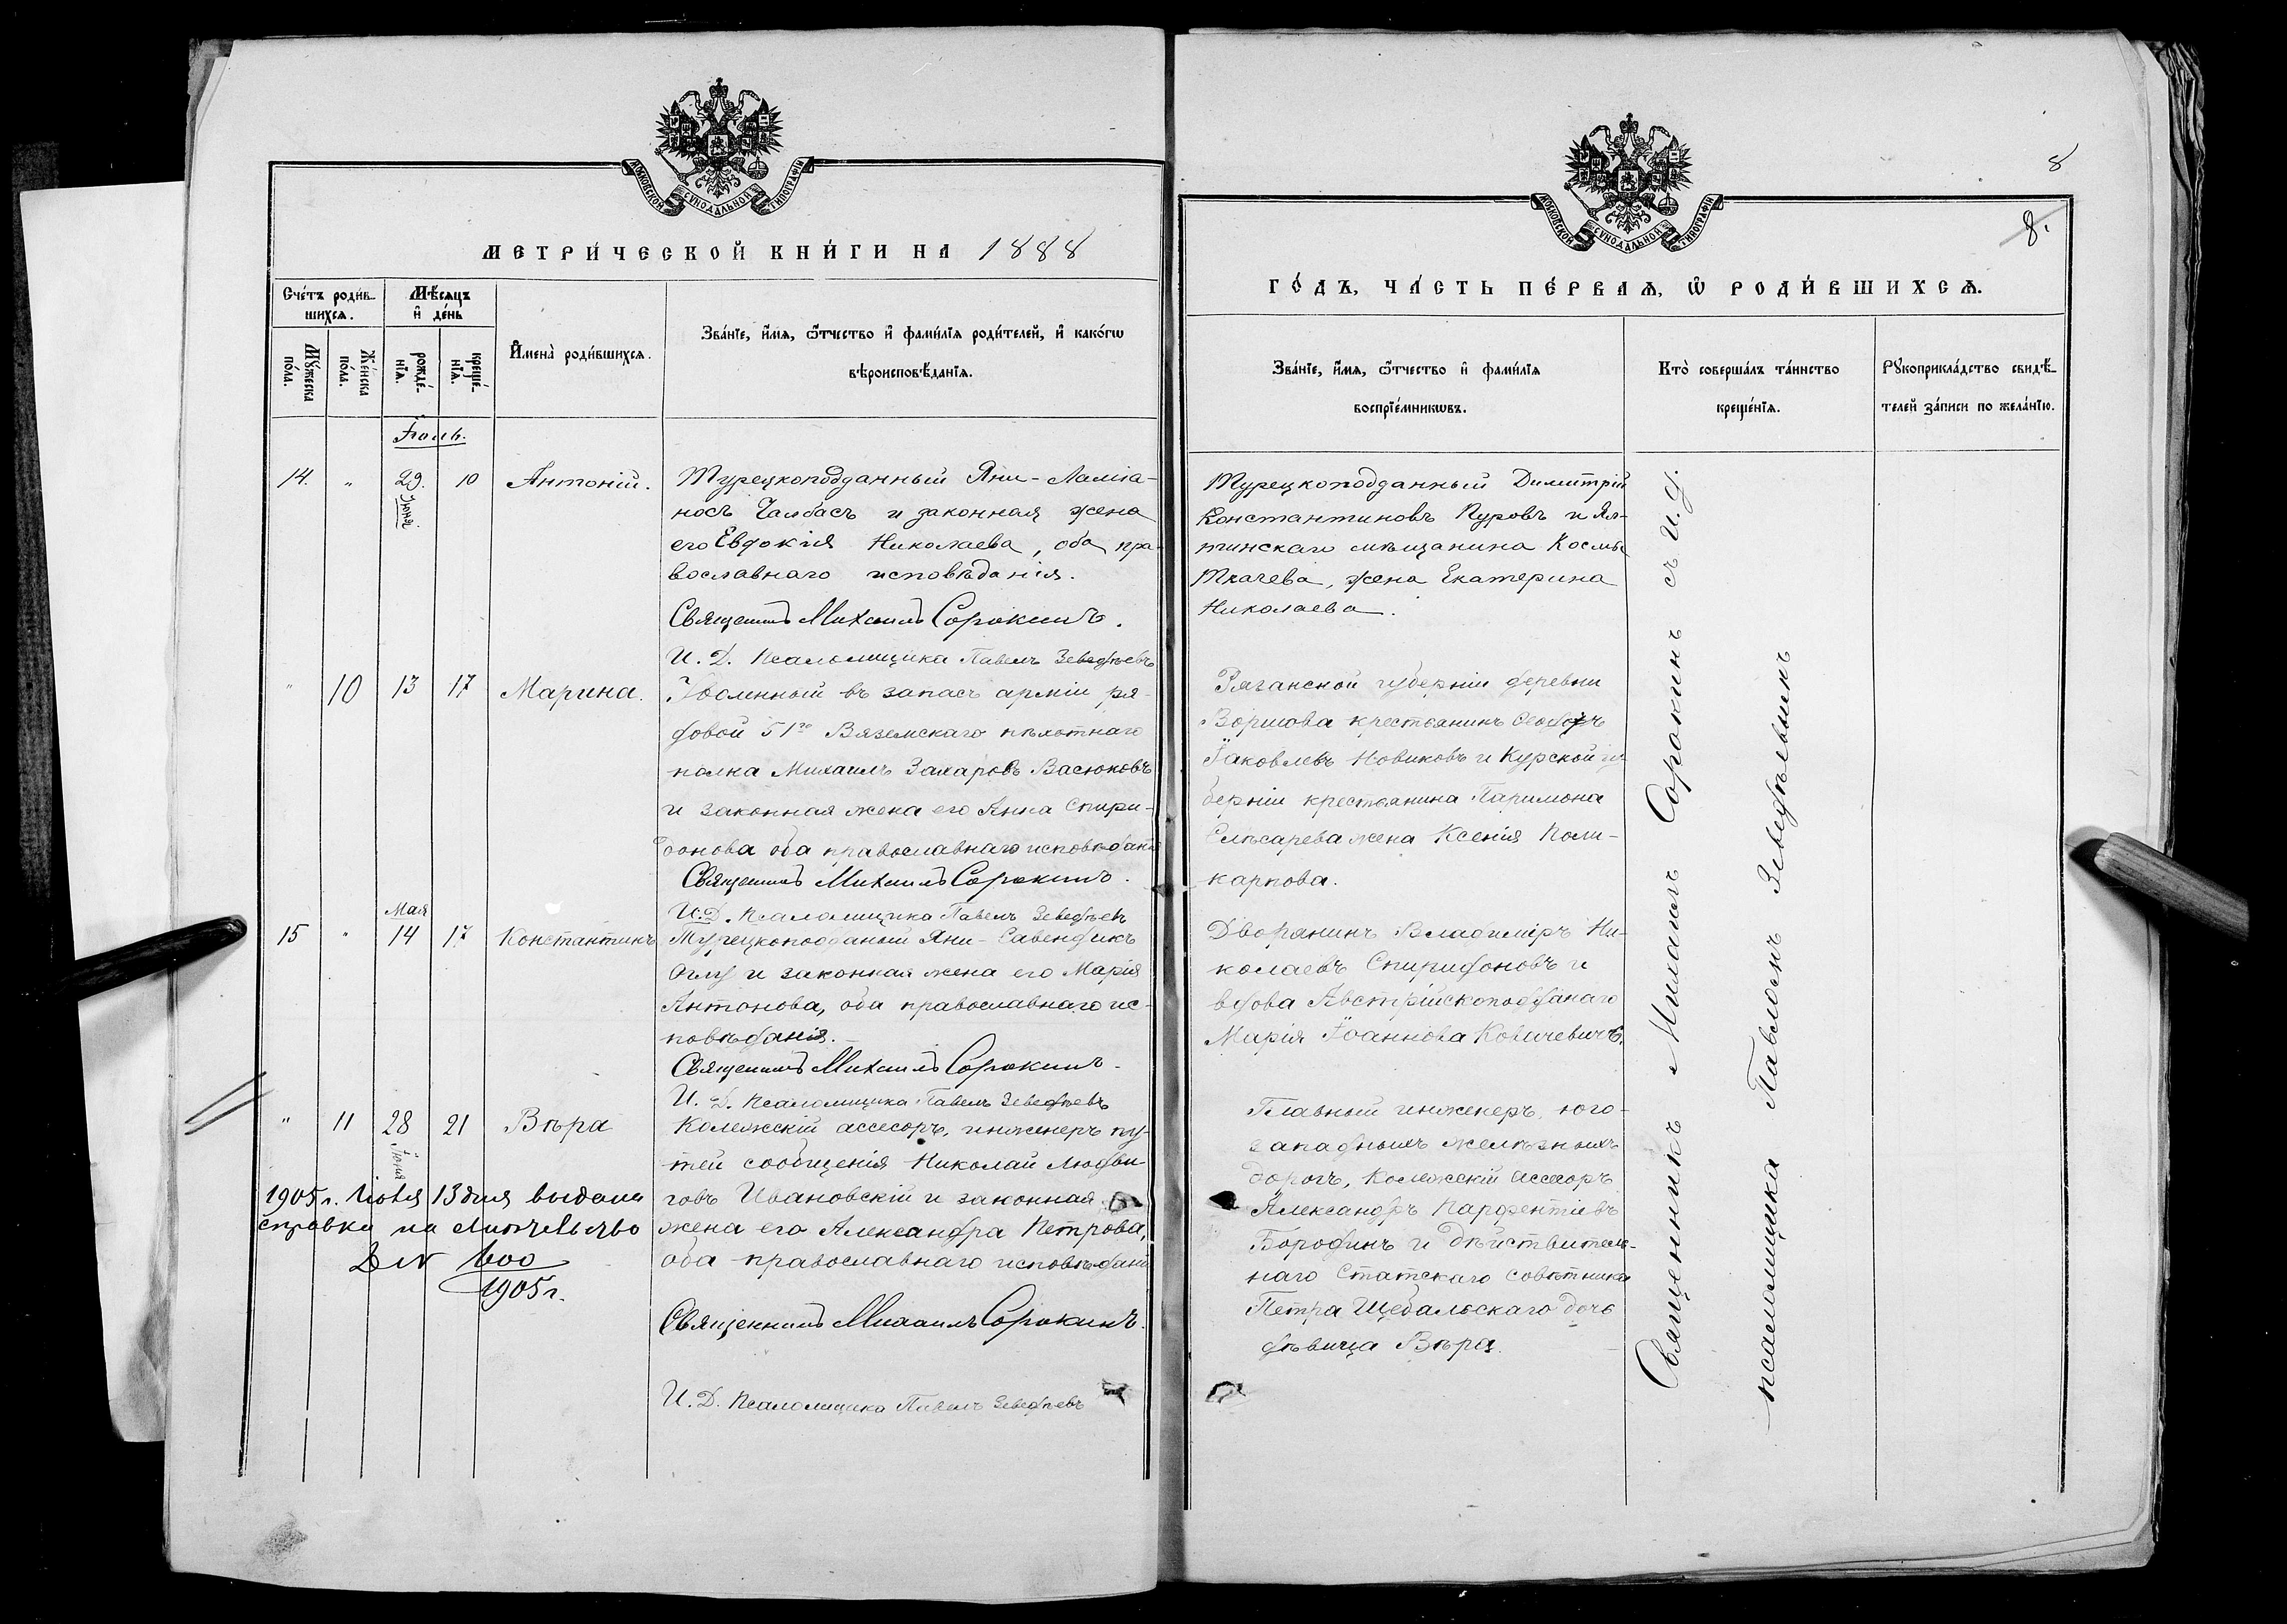 МОСКОВСКОЙ СУНОДАЛЬНОЙ ТИПОГРАФІИ
МЕТРИ́ЧЕСКОЙ КНИ́ГИ НА 1888
Сче́тъ роди́в-
шихся.
Мѣ́сяцъ
и҆ де́нь
И҆мена̀ роди́вшихся.
Зва́нїе, и҆́мя, ѻ҆́тчество и҆ фами́лїя роди́телей, и҆ како́гѡ
вѣроисповѣ́данїя.
Мꙋ́жеска
по́ла.
Же́нска
по́ла.
рожде́-
нїя.
креще́-
нїя.
Іюль.
14. " 29. Іюня 10 Антоній.
Турецкоподданный Яни-Ламіа-
носъ Чалбасъ и законная жена
его Евдокія Николаева, оба пра-
вославнаго исповѣданія.
Священникъ Михаилъ Сорокинъ.
И. Д. Псаломщика Павелъ Зеведѣевъ
" 10 13 17 Марина.
Уволенный въ запасъ арміи ря-
довой 51го Вяземскаго пѣхотнаго
полка Михаилъ Захаровъ Васюковъ
и законная жена его Анна Спири-
донова оба православнаго исповѣдані
Священникъ Михаилъ Сорокинъ.
И. Д. Псаломщика Павелъ Зеведѣевъ
15 " Мая 14 17 Константинъ
Турецкоподданый Яни-Савендикъ
Оглу и законная жена его Марія
Антонова, оба православнаго ис-
повѣданія.
Священникъ Михаилъ Сорокинъ.
И. Д. Псаломщика Павелъ Зеведѣевъ
" 11 28 Іюня 21 Вѣра
Колежскій ассесоръ, инженеръ пу-
тей сообщенія Николай Людви-
говъ Ивановскій и законная
жена его Александра Петрова,
оба православнаго исповѣдані
Священникъ Михаилъ Сорокинъ.
И. Д. Псаломщика Павелъ Зеведѣевъ
1905 г. 13 дня выдана
справка на
600
1905 г.
МОСКОВСКОЙ СУНОДАЛЬНОЙ ТИПОГРАФІИ
8
8.
ГО́ДЪ, ЧА́СТЬ ПЕ́РВАЯ, Ѡ҆ РОДИ́ВШИХСЯ.
Зва́нїе, и҆́мя, ѻ҆́тчество и҆ фами́лїя
воспрїе́мникѡвъ.
Кто̀ соверша́лъ та́инство
креще́нїя.
Рꙋкоприкла́дство свидѣ́-
телей за́писи по жела́нїю.
Турецкоподданный Димитрій
Константиновъ Пуровъ и Ял-
тинскаго мѣщанина Космы
Ткачева, жена Екатерина
Николаева.
Рязанской губерніи деревни
Воршова крестьянинъ Ѳеодоръ
Іаковлевъ Новиковъ и Курской гу
берніи крестьянина Паримона
Слѣсарева жена Ксенія Поли-
карпова.
Дворянинъ Владиміръ Ни-
колаевъ Спиридоновъ и
вдова Австрійскоподданаго
Марія Іоаннова Ковачевичъ.
Главный инженеръ, юго-
западныхъ желѣзныхъ
дорогъ, Колежскій ассесоръ
Александръ Парфентіевъ
Бородинъ и дѣйствитель-
наго Статскаго совѣтника
Петра Щебальскаго дочь
дѣвица Вѣра.
Священникъ Михаилъ Сорокинъ съ И. д.
псаломщика Павломъ Зеведѣевымъ